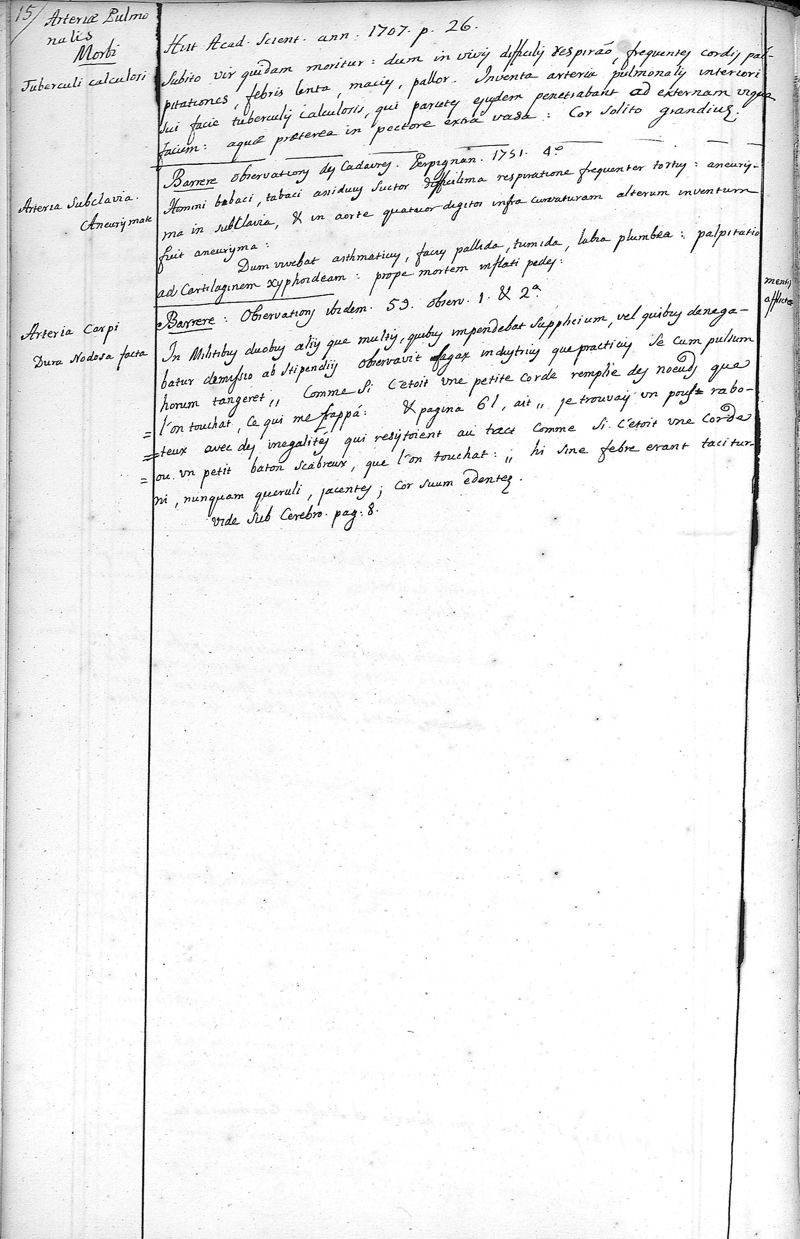 15/ Arteriæ Pulmo
nalis
Morbi
Tuberculi calculosi
Hist Acad. Scient. ann: 1707. p. 26.
Subito vir quidam moritur: dum in vivis difficilis respirāo, frequentes cordis pal-
pitationes, febris lenta, macies, pallor. Inventa arteria pulmonalis interiori
sui facie tuberculis calculosis, qui parietes ejusdem penetrabant ad externam usque
faciem: aquæ præterea in pectore extra vasa: Cor solito grandius.
Arteria Subclavia.
Aneurysmate
Barrere observations des Cadavres. Perpignan. 1751. 4º
Homini bibaci, tabaci assiduus suctor difficilima respiratione frequenter tortus: aneurys-
ma in subclavia, & in aorte quatuor digitos infra curvaturam alterum inventum
fuit aneurysma:
Dum vivebat asthmaticus, facies pallida, tumida, labia plumbea: palpitatio
ad Cartilaginem xyphoideam: prope mortem inflati pedes:
Arteria Carpi
Dura Nodosa facta
Barrere: Observations ibidem. 59. observ. 1. & 2ª
mentis
afflictæ
In Militibus duobus aliis que multis, quibus impendebat supplicium, vel quibus denega-
batur demissio ab stipendiis observavit sagax industrius que practicus se cum pulsum
horum tangeret „ Comme si c'etoit une petite corde remplie des noeuds que
l'on touchat, ce qui me frappá: & pagina 61, ait „ je trouvais un pouls rabo-
teux avec des inegalités qui resistoient au tact comme si c'etoit une corde
ou un petit baton scabreux, que l'on touchat: „ hi sine febre erant tacitur-
ni, nunquam queruli, jacentes; cor suum edentes.
vide sub Cerebro. pag. 8.